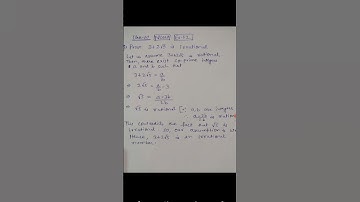 1) Prove 3+2√5 is irrational
Let us assume 3+2√5 is rational,
Then, there exist co-prime integers
a and b such that
3+2√5 = a/b
⇒ 2√5 = a/b - 3
⇒ √5 =
⇒ √5 is rational [∵ a, b are integers
is rational
This contradicts the fact that √5 is
irrational. So our assumption is
Hence, 3+2√5 is an irrational
number.